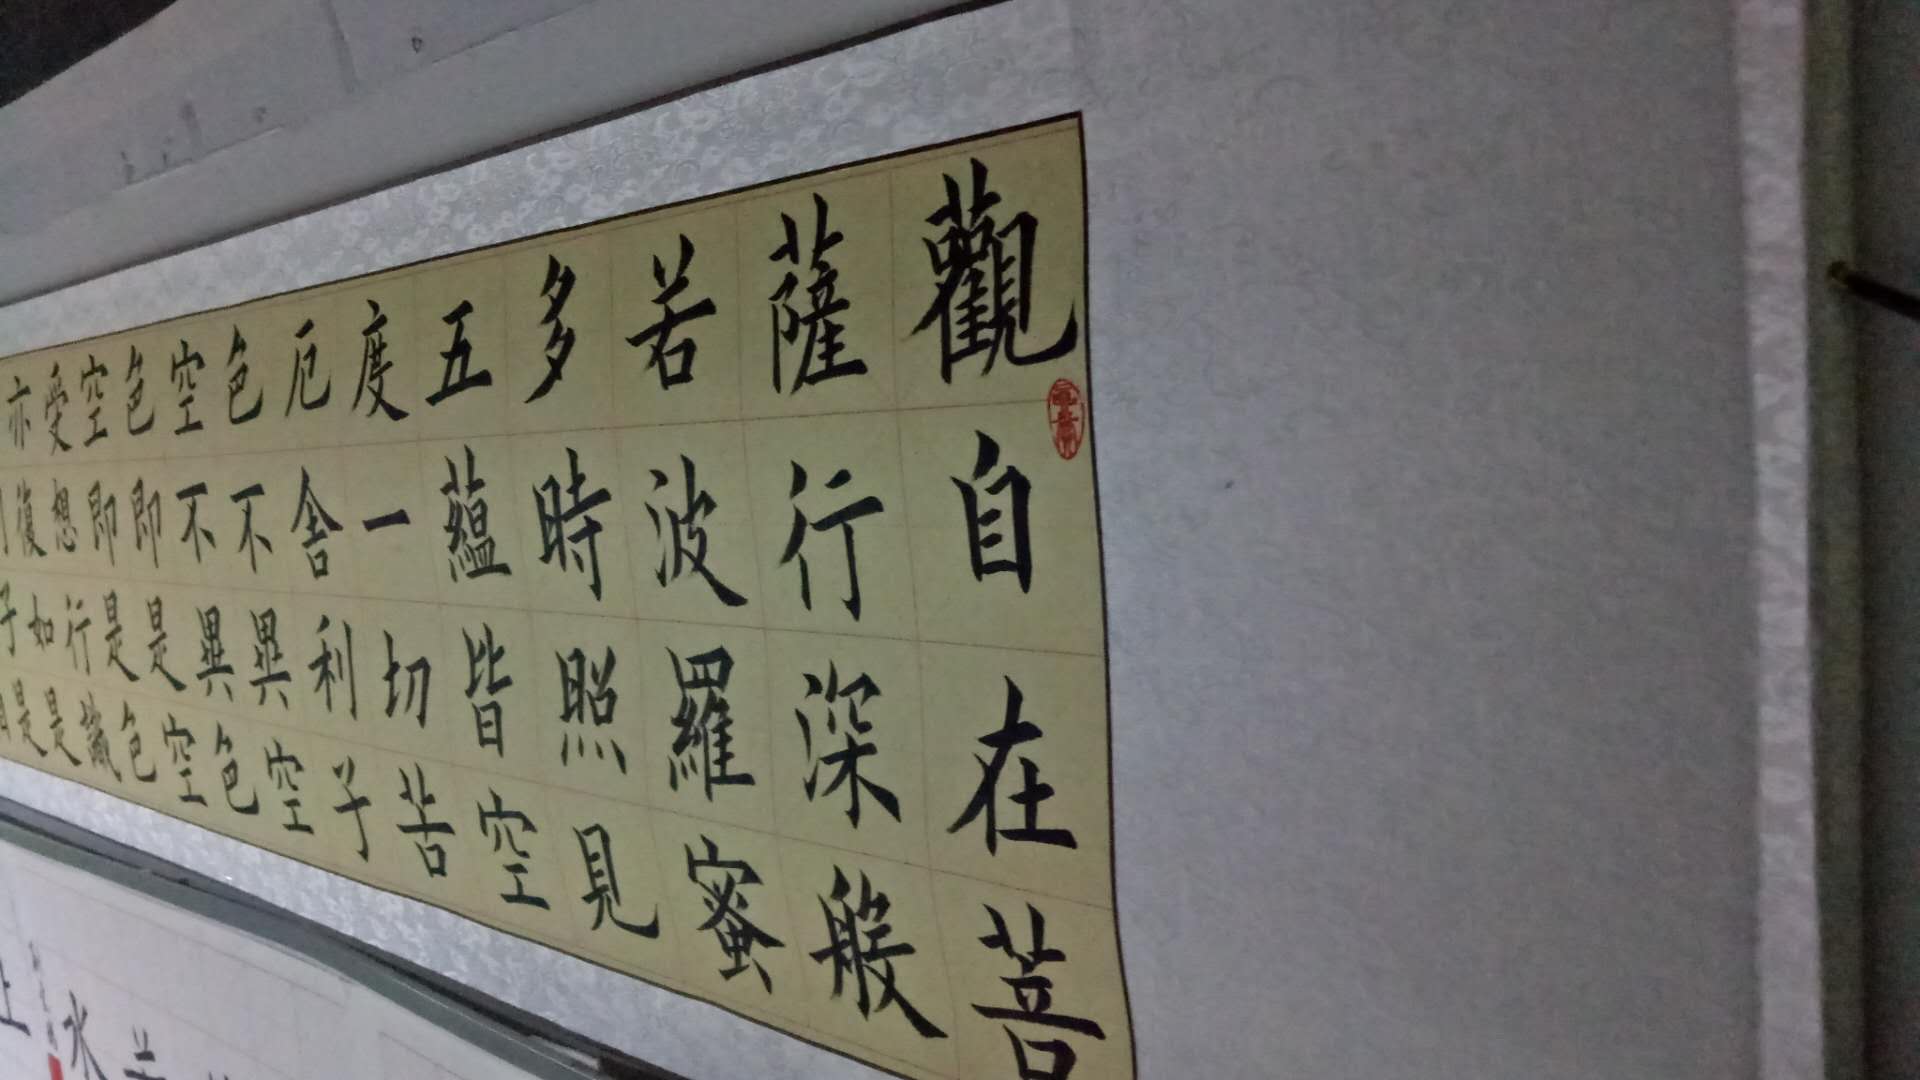 觀自在菩
薩行深般
若波羅蜜
多時照見
五蘊皆空
度一切苦
厄舍利子
色不異空
空不異色
色即是空
空即是色
受想行識
亦復如是
子是
水
上